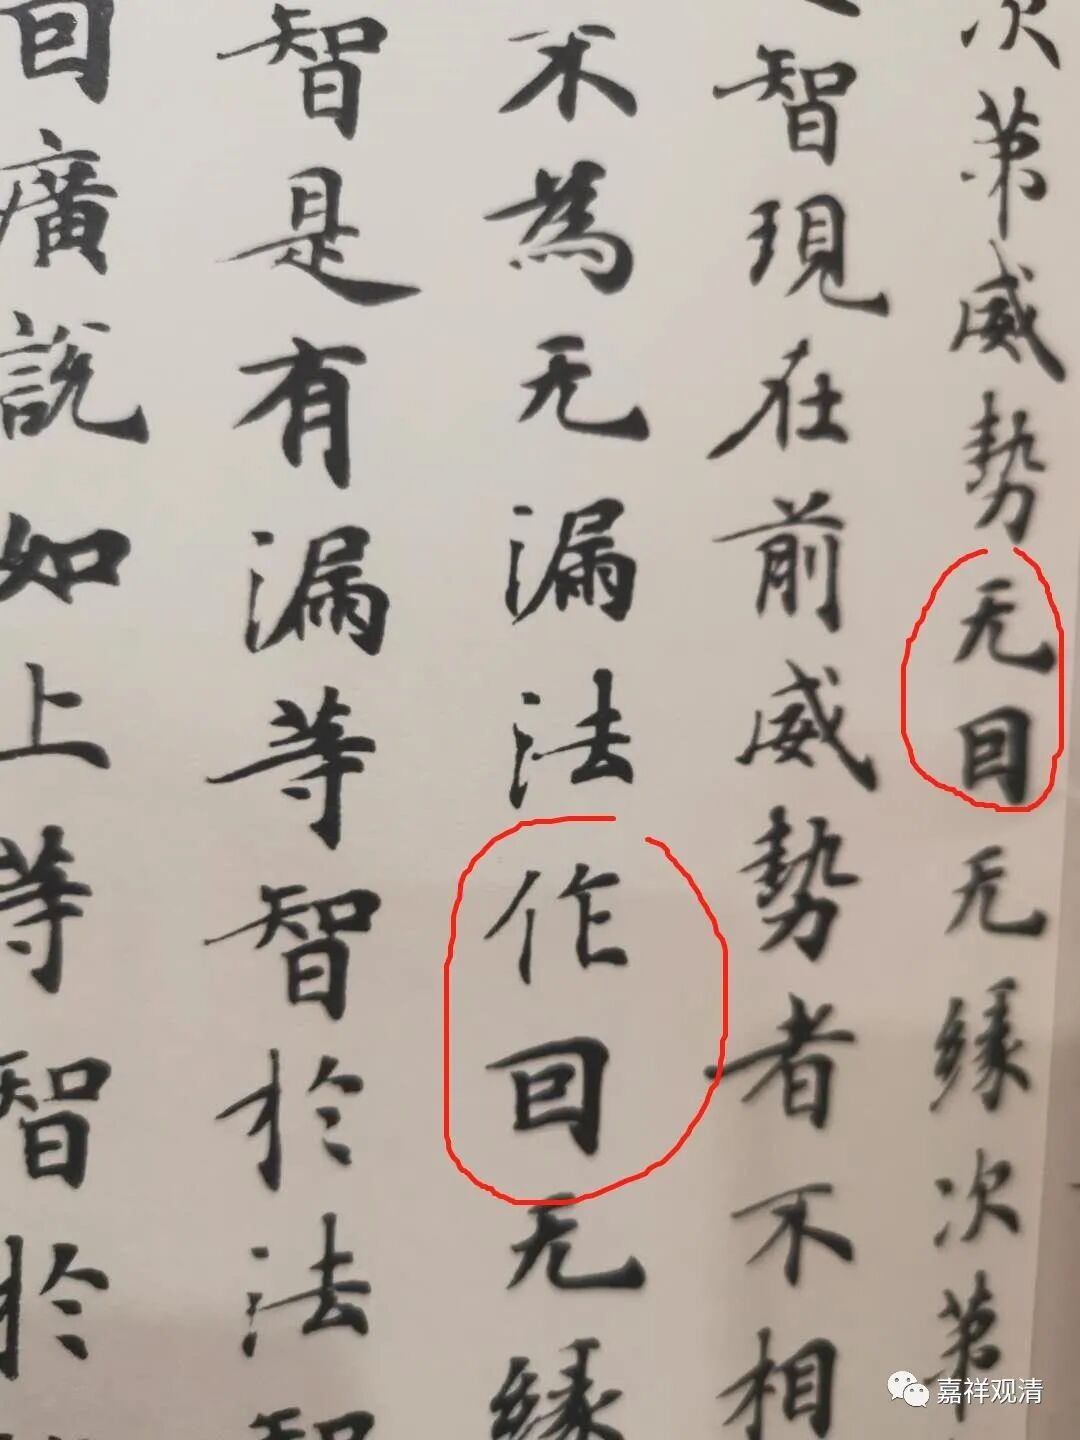 次苐威勢无囙无緣次苐
智現在前威勢者不相
不為无漏法作囙无緣
智是有漏等智於法智
囙廣說如上等智於
嘉祥观清